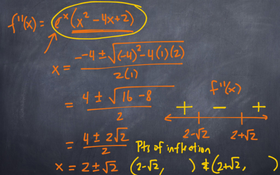 f''(x) = e^x (x² - 4x + 2)
x = (- -4 ± √((-4)² - 4(1)(2))) / 2(1)
= (4 ± √(16 - 8)) / 2
= (4 ± 2√2) / 2
x = 2 ± √2
f''(x)
+ - +
2-√2 2+√2
Pts of inflection
(2-√2, ) & (2+√2, )